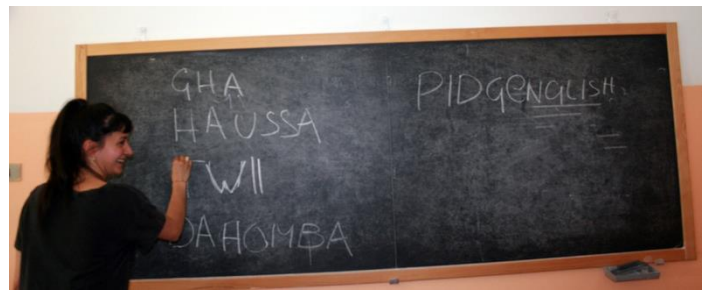 GHA
HAUSSA
TWII
DAHOMBA
PIDGeNGLISH